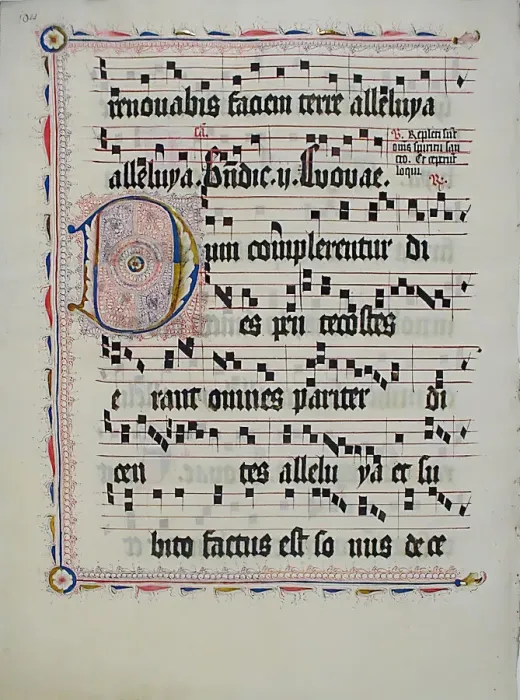 renouabis faciem terre alleluya
alleluya. Bñdic. ij. Evovae.
ca.
V. Repleti sūt
oīns spiritu san
cto. Et ceperūt
loqui. R.
Dum complerentur di
es pen tecostes
e rant omnes pariter di
cen tes allelu ya et su
bito factus est so nus de ce